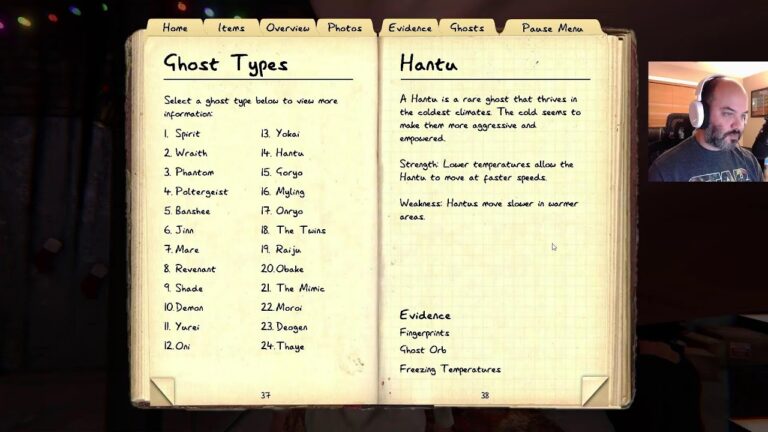 Home Items Overview Photos Evidence Ghosts Pause Menu
Ghost Types
Select a ghost type below to view more
information:
1. Spirit
2. Wraith
3. Phantom
4. Poltergeist
5. Banshee
6. Jinn
7. Mare
8. Revenant
9. Shade
10. Demon
11. Yurei
12. Oni
13. Yokai
14. Hantu
15. Goryo
16. Myling
17. Onryo
18. The Twins
19. Raiju
20. Obake
21. The Mimic
22. Moroi
23. Deogen
24. Thaye
37
Hantu
A Hantu is a rare ghost that thrives in
the coldest climates. The cold seems to
make them more aggressive and
empowered.
Strength: Lower temperatures allow the
Hantu to move at faster speeds.
Weakness: Hantus move slower in warmer
areas.
Evidence
Fingerprints
Ghost Orb
Freezing Temperatures
38